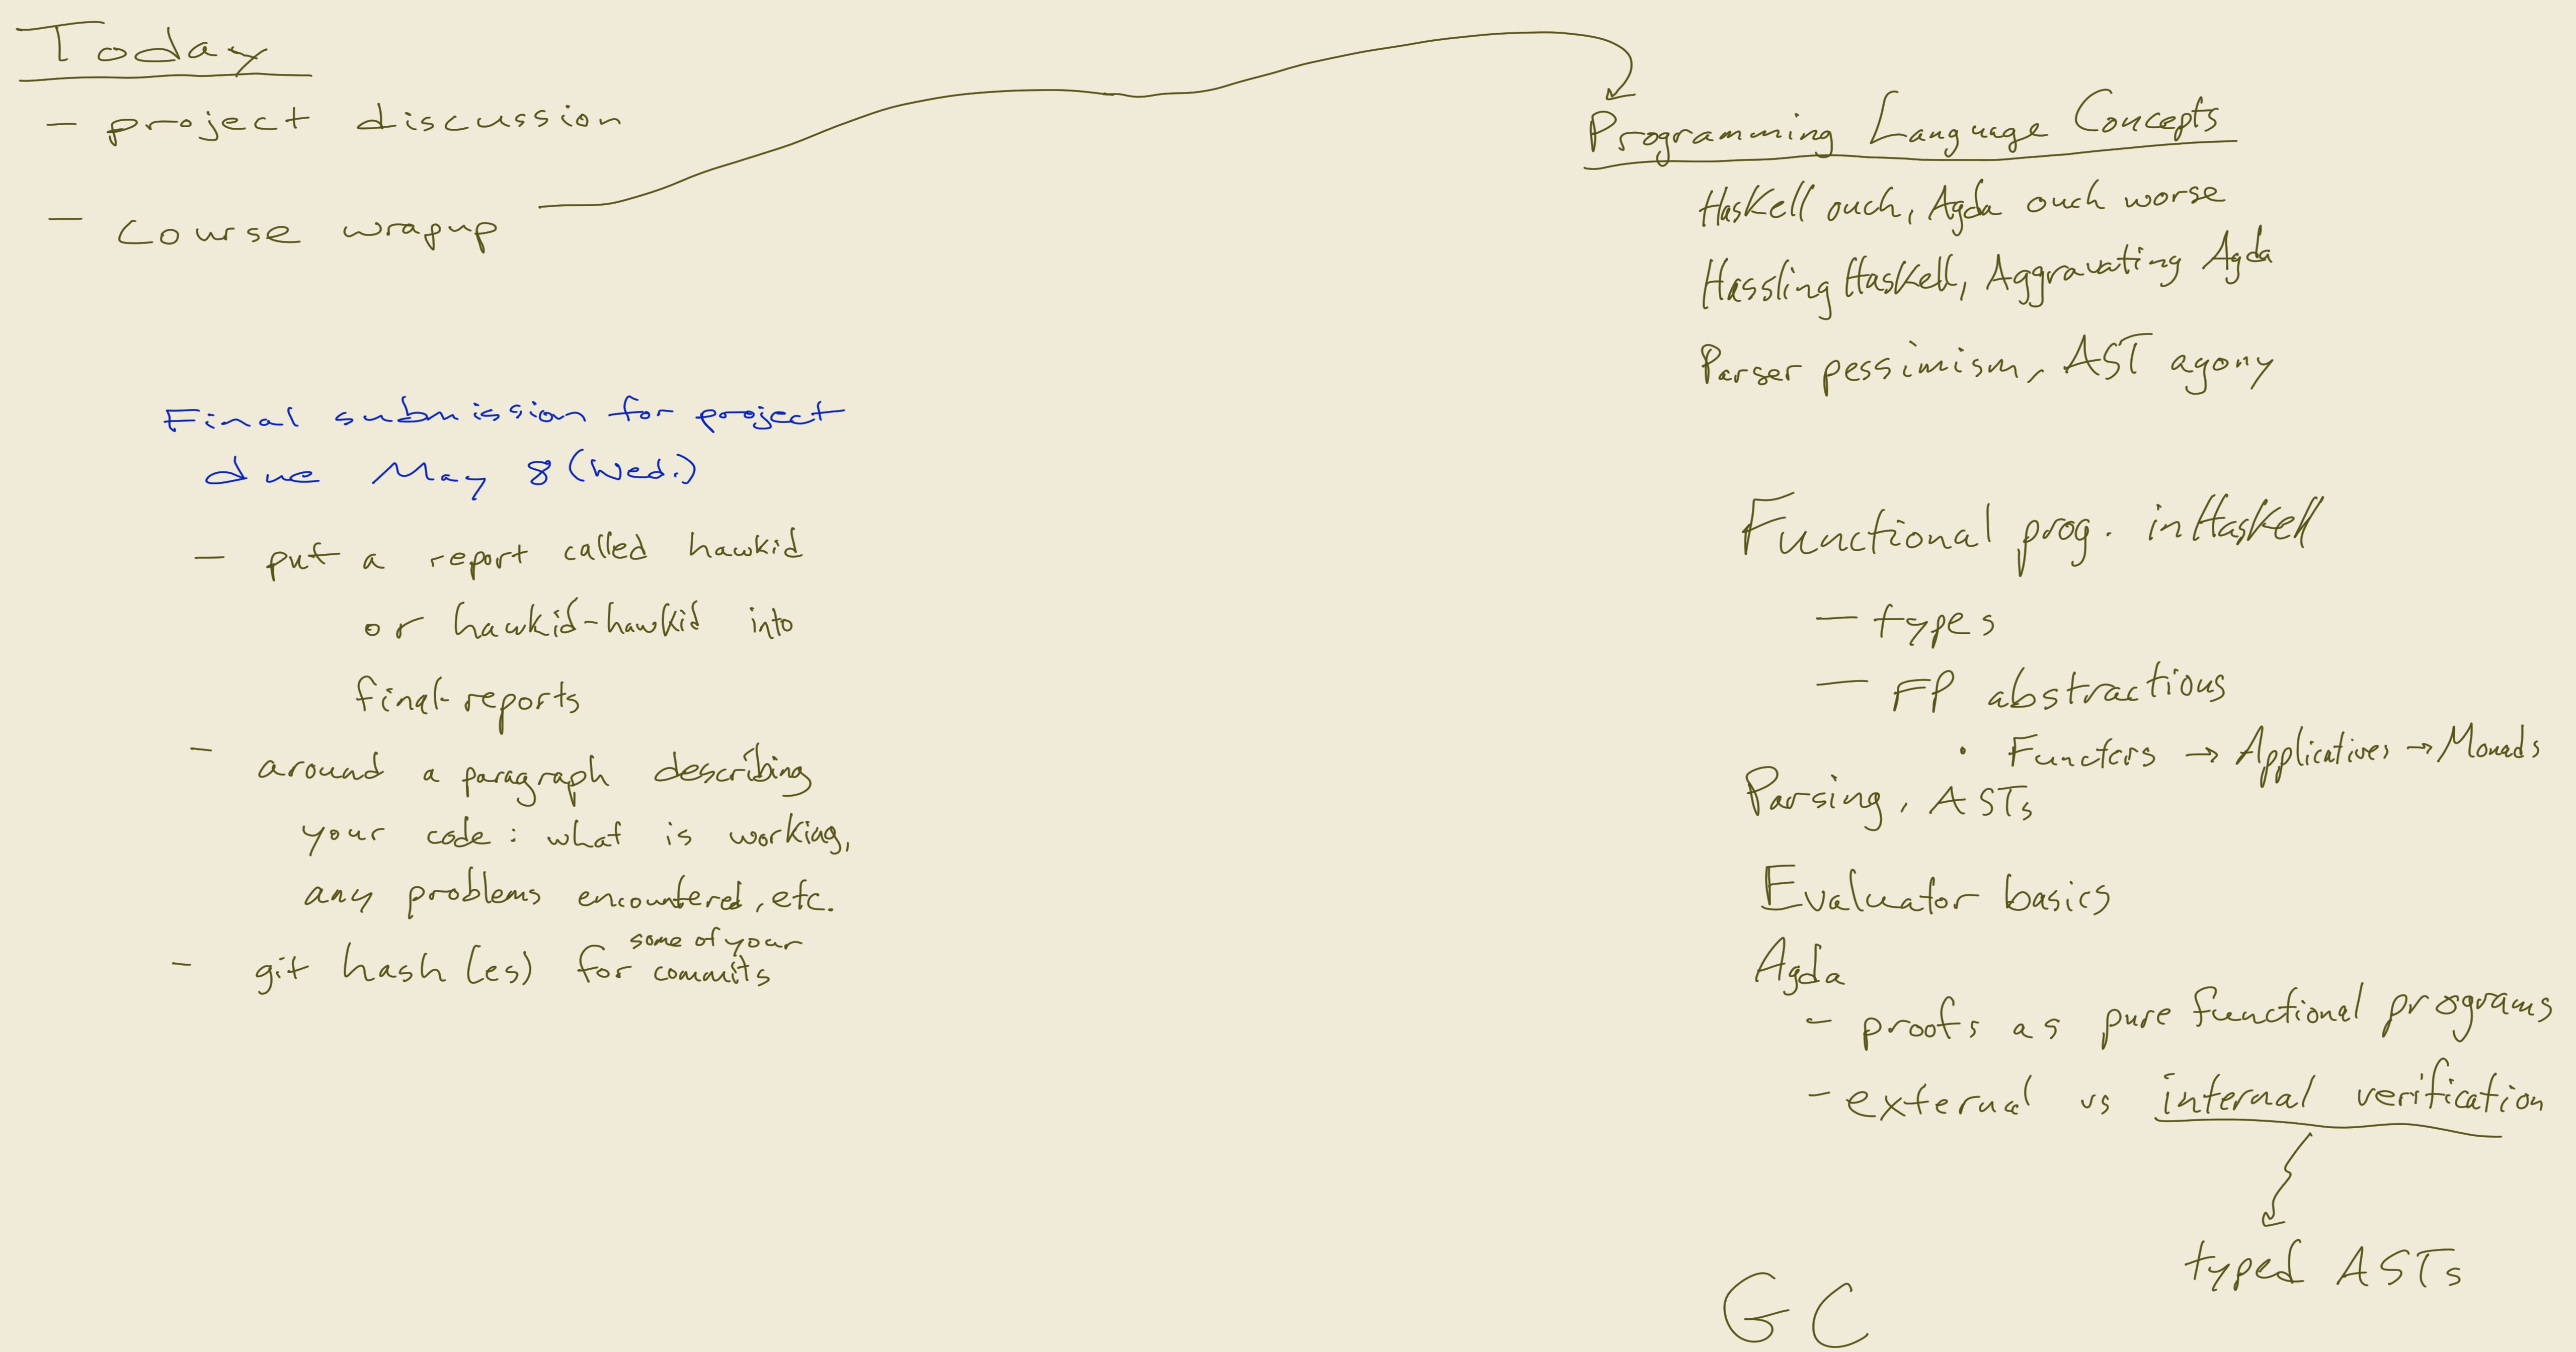 Today
- project discussion
- Course wrapup
Final submission for project
due May 8 (Wed.)
- put a report called hawkid
or hawkid-hawkid into
final-reports
- around a paragraph describing
your code: what is working,
any problems encountered, etc.
- git hash(es) for some of your commits
Programming Language Concepts
Haskell ouch, Agda ouch worse
Hassling Haskell, Aggravating Agda
Parser pessimism, AST agony
Functional prog. in Haskell
- types
- FP abstractions
• Functors → Applicatives → Monads
Parsing, ASTs
Evaluator basics
Agda
- proofs as pure functional programs
- external vs internal verification
typed ASTs
GC